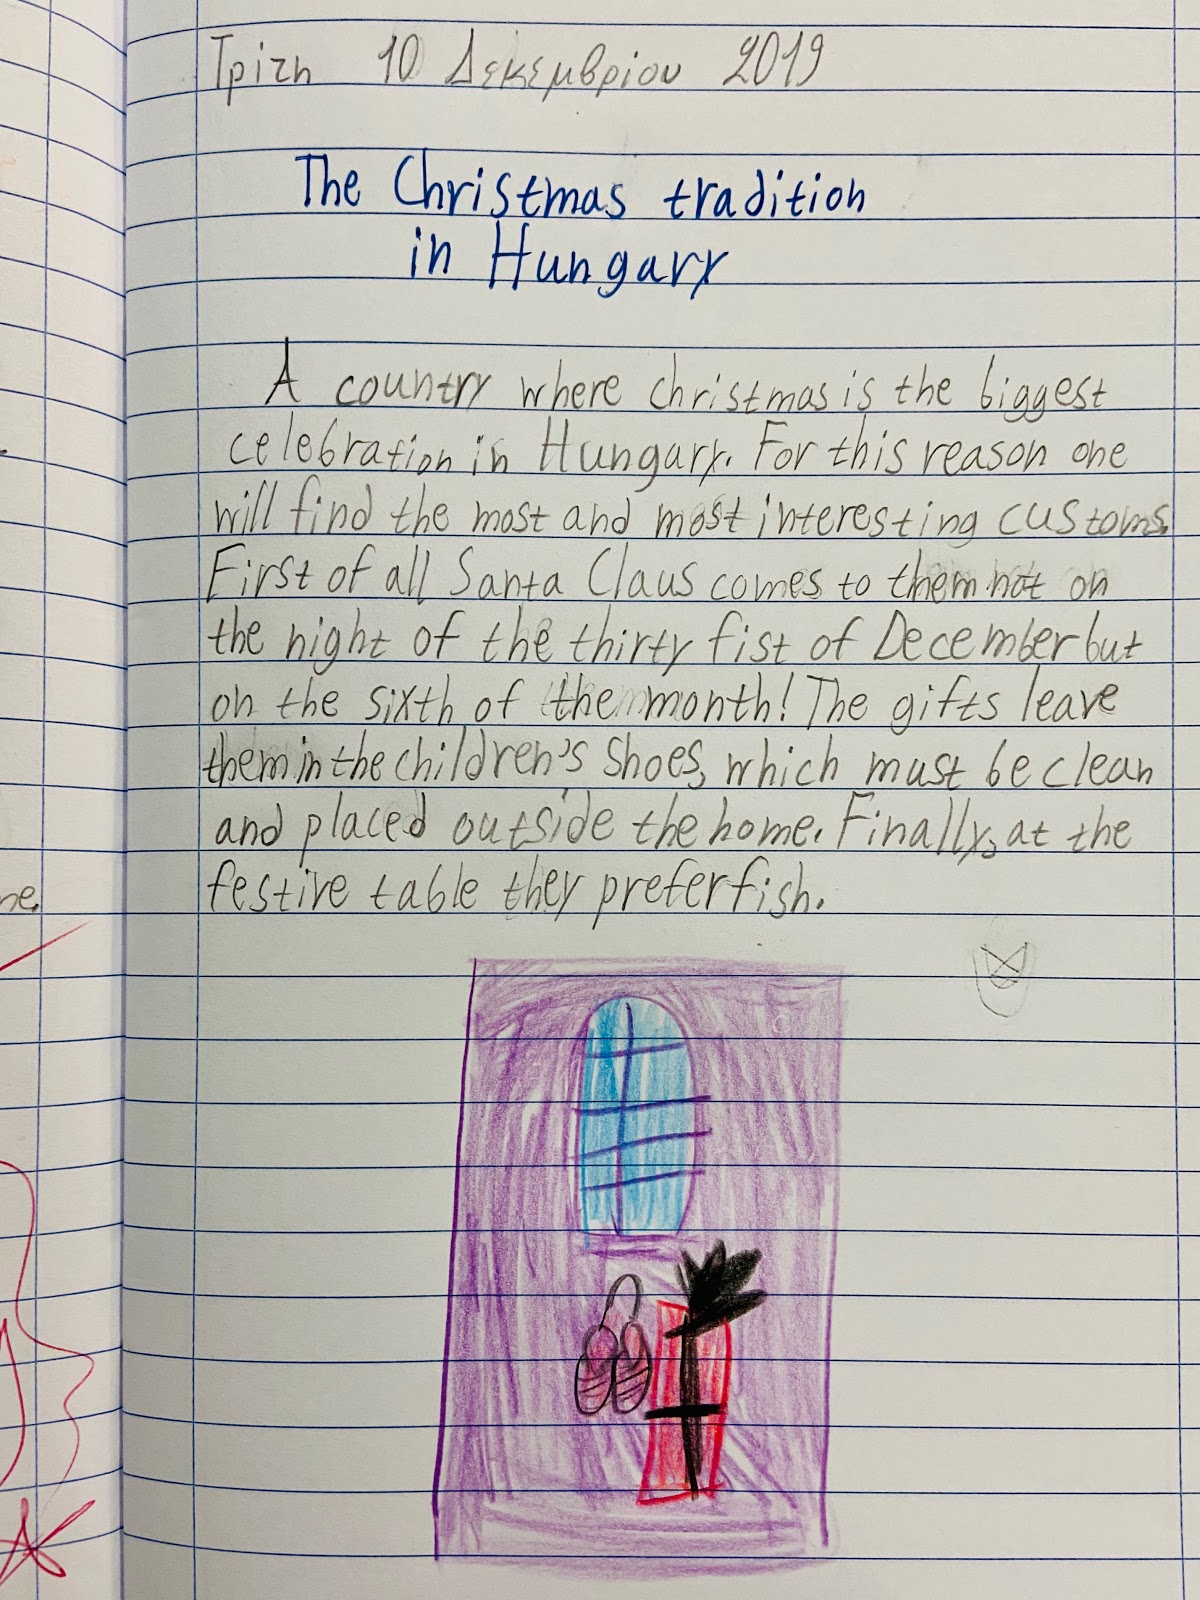 Τρίτη 10 Δεκεμβρίου 2019
The Christmas tradition
in Hungary
A country where christmas is the biggest
celebration in Hungary. For this reason one
will find the most and most interesting customs.
First of all Santa Claus comes to them not on
the night of the thirty fist of December but
on the sixth of the month! The gifts leave
them in the children's shoes, which must be clean
and placed outside the home. Finally, at the
festive table they prefer fish.
ne.